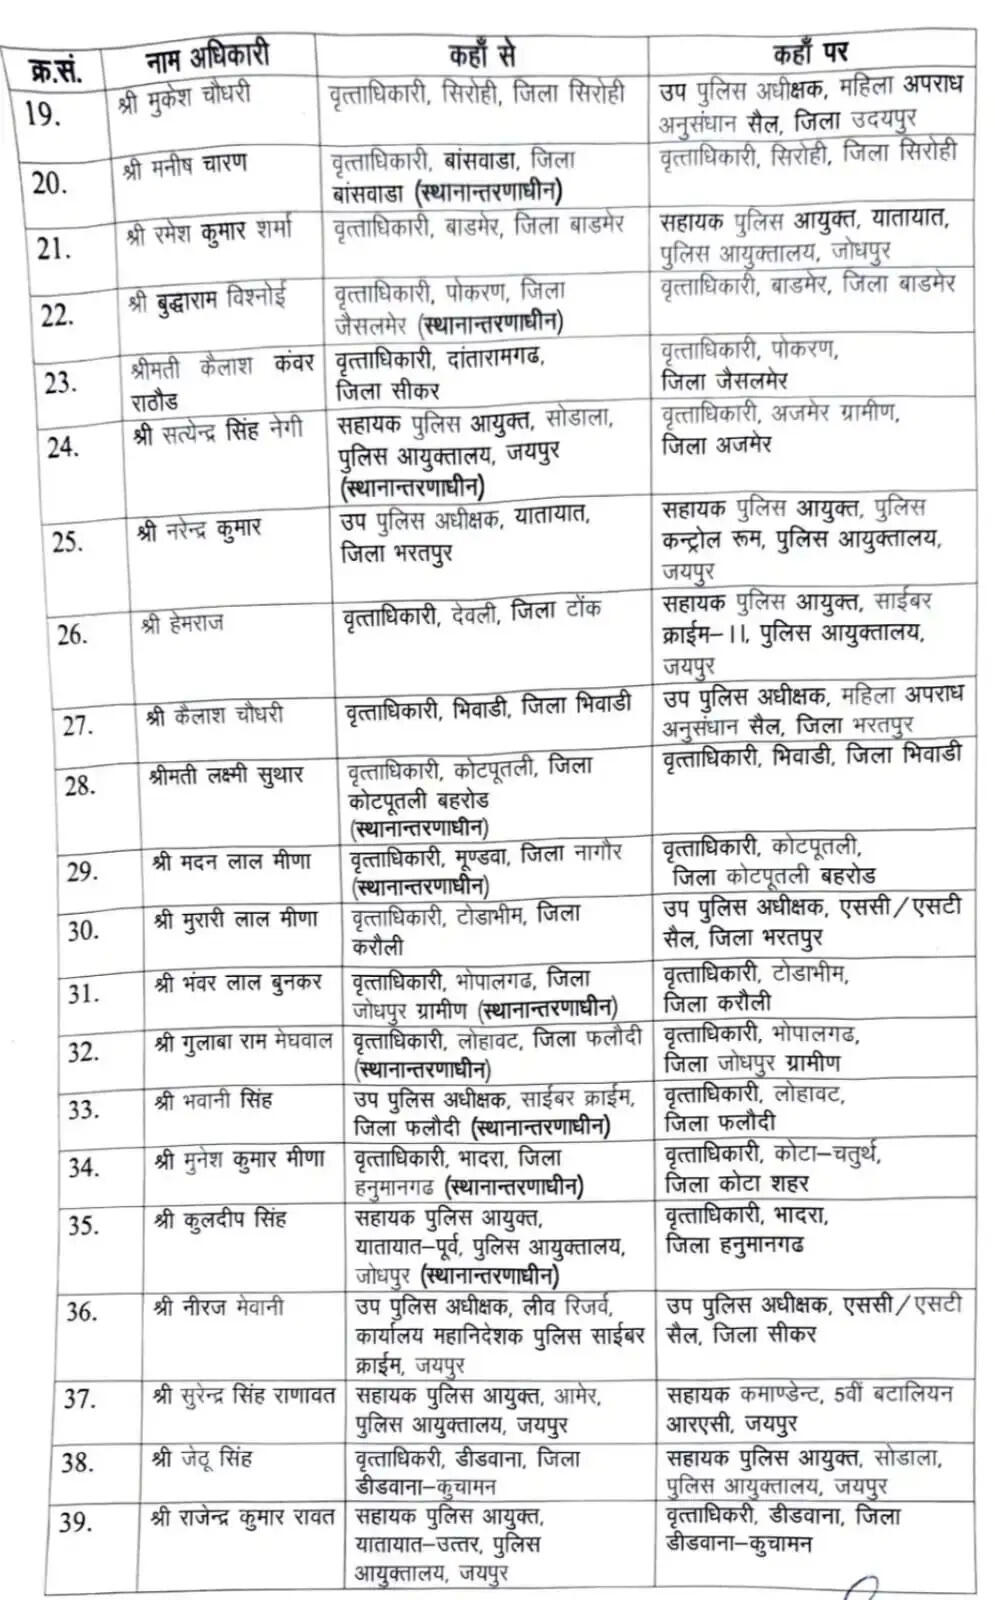 क्र.सं. नाम अधिकारी कहाँ से कहाँ पर
19. श्री मुकेश चौधरी वृत्ताधिकारी, सिरोही, जिला सिरोही उप पुलिस अधीक्षक, महिला अपराध
अनुसंधान सैल, जिला उदयपुर
20. श्री मनीष चारण वृत्ताधिकारी, बांसवाडा, जिला वृत्ताधिकारी, सिरोही, जिला सिरोही
बांसवाडा (स्थानान्तरणाधीन)
21. श्री रमेश कुमार शर्मा वृत्ताधिकारी, बाडमेर, जिला बाडमेर सहायक पुलिस आयुक्त, यातायात,
पुलिस आयुक्तालय, जोधपुर
22. श्री बुद्धाराम विश्नोई वृत्ताधिकारी, पोकरण, जिला वृत्ताधिकारी, बाडमेर, जिला बाडमेर
जैसलमेर (स्थानान्तरणाधीन)
23. श्रीमती कैलाश कंवर वृत्ताधिकारी, दांतारामगढ, वृत्ताधिकारी, पोकरण,
राठौड जिला सीकर जिला जैसलमेर
24. श्री सत्येन्द्र सिंह नेगी सहायक पुलिस आयुक्त, सोडाला, वृत्ताधिकारी, अजमेर ग्रामीण,
पुलिस आयुक्तालय, जयपुर जिला अजमेर
(स्थानान्तरणाधीन)
25. श्री नरेन्द्र कुमार उप पुलिस अधीक्षक, यातायात, सहायक पुलिस आयुक्त, पुलिस
जिला भरतपुर कन्ट्रोल रूम, पुलिस आयुक्तालय,
जयपुर
26. श्री हेमराज वृत्ताधिकारी, देवली, जिला टोंक सहायक पुलिस आयुक्त, साईबर
क्राईम–II, पुलिस आयुक्तालय,
जयपुर
27. श्री कैलाश चौधरी वृत्ताधिकारी, भिवाडी, जिला भिवाडी उप पुलिस अधीक्षक, महिला अपराध
अनुसंधान सैल, जिला भरतपुर
28. श्रीमती लक्ष्मी सुथार वृत्ताधिकारी, कोटपूतली, जिला वृत्ताधिकारी, भिवाडी, जिला भिवाडी
कोटपूतली बहरोड
(स्थानान्तरणाधीन)
29. श्री मदन लाल मीणा वृत्ताधिकारी, मूण्डवा, जिला नागौर वृत्ताधिकारी, कोटपूतली,
(स्थानान्तरणाधीन) जिला कोटपूतली बहरोड
30. श्री मुरारी लाल मीणा वृत्ताधिकारी, टोडाभीम, जिला उप पुलिस अधीक्षक, एससी/एसटी
करौली सैल, जिला भरतपुर
31. श्री भंवर लाल बुनकर वृत्ताधिकारी, भोपालगढ, जिला वृत्ताधिकारी, टोडाभीम,
जोधपुर ग्रामीण (स्थानान्तरणाधीन) जिला करौली
32. श्री गुलाबा राम मेघवाल वृत्ताधिकारी, लोहावट, जिला फलौदी वृत्ताधिकारी, भोपालगढ,
(स्थानान्तरणाधीन) जिला जोधपुर ग्रामीण
33. श्री भवानी सिंह उप पुलिस अधीक्षक, साईबर क्राईम, वृत्ताधिकारी, लोहावट,
जिला फलौदी (स्थानान्तरणाधीन) जिला फलौदी
34. श्री मुनेश कुमार मीणा वृत्ताधिकारी, भादरा, जिला वृत्ताधिकारी, कोटा–चतुर्थ,
हनुमानगढ (स्थानान्तरणाधीन) जिला कोटा शहर
35. श्री कुलदीप सिंह सहायक पुलिस आयुक्त, वृत्ताधिकारी, भादरा,
यातायात–पूर्व, पुलिस आयुक्तालय, जिला हनुमानगढ
जोधपुर (स्थानान्तरणाधीन)
36. श्री नीरज मेवानी उप पुलिस अधीक्षक, लीव रिजर्व, उप पुलिस अधीक्षक, एससी/एसटी
कार्यालय महानिदेशक पुलिस साईबर सैल, जिला सीकर
क्राईम, जयपुर
37. श्री सुरेन्द्र सिंह राणावत सहायक पुलिस आयुक्त, आमेर, सहायक कमाण्डेन्ट, 5वीं बटालियन
पुलिस आयुक्तालय, जयपुर आरएसी, जयपुर
38. श्री जेठू सिंह वृत्ताधिकरी, डीडवाना, जिला सहायक पुलिस आयुक्त, सोडाला,
डीडवाना–कुचामन पुलिस आयुक्तालय, जयपुर
39. श्री राजेन्द्र कुमार रावत सहायक पुलिस आयुक्त, वृत्ताधिकरी, डीडवाना, जिला
यातायात–उत्तर, पुलिस डीडवाना–कुचामन
आयुक्तालय, जयपुर